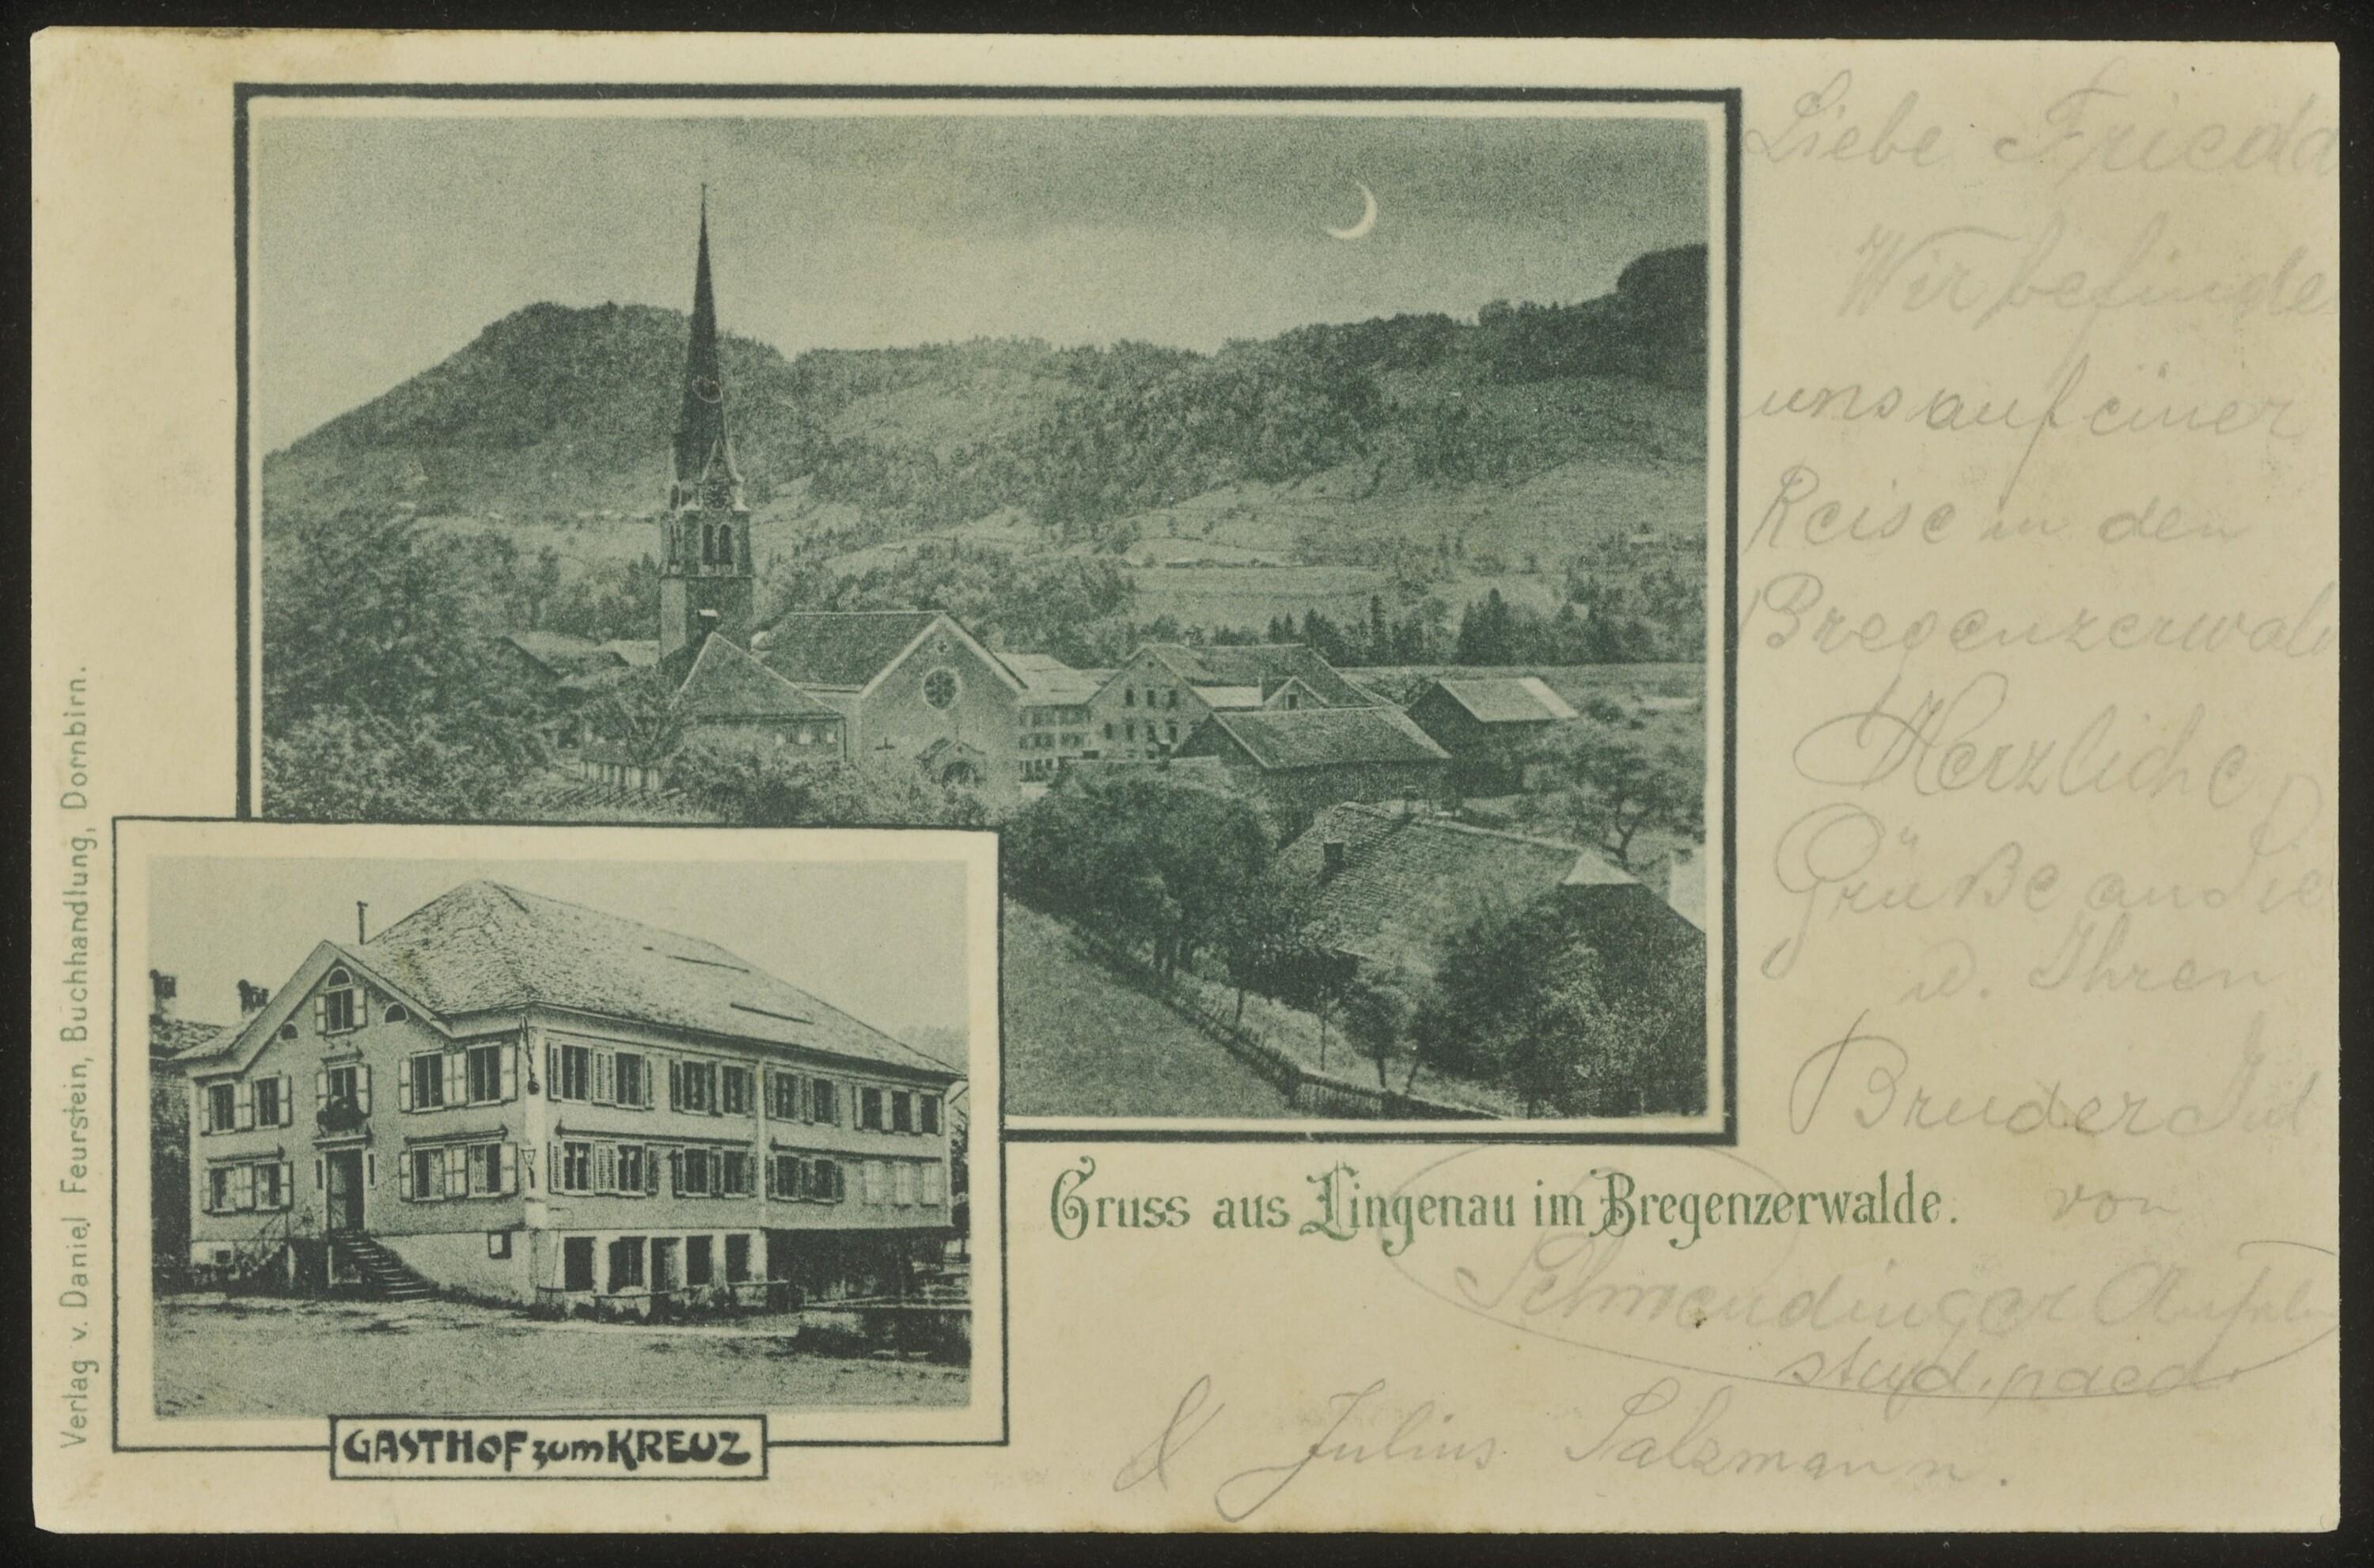 Liebe Frieda
Wir befinde
uns auf einer
Reise in den
Bregenzerwal
Herzliche
Grüße an Sie
u. Ihren
Bruder
von
Schwendinger
stud. paed.
& Julius Salzmann.
Gruss aus Lingenau im Bregenzerwalde.
GASTHOF zum KREUZ
Verlag v. Daniel Feurstein, Buchhandlung, Dornbirn.